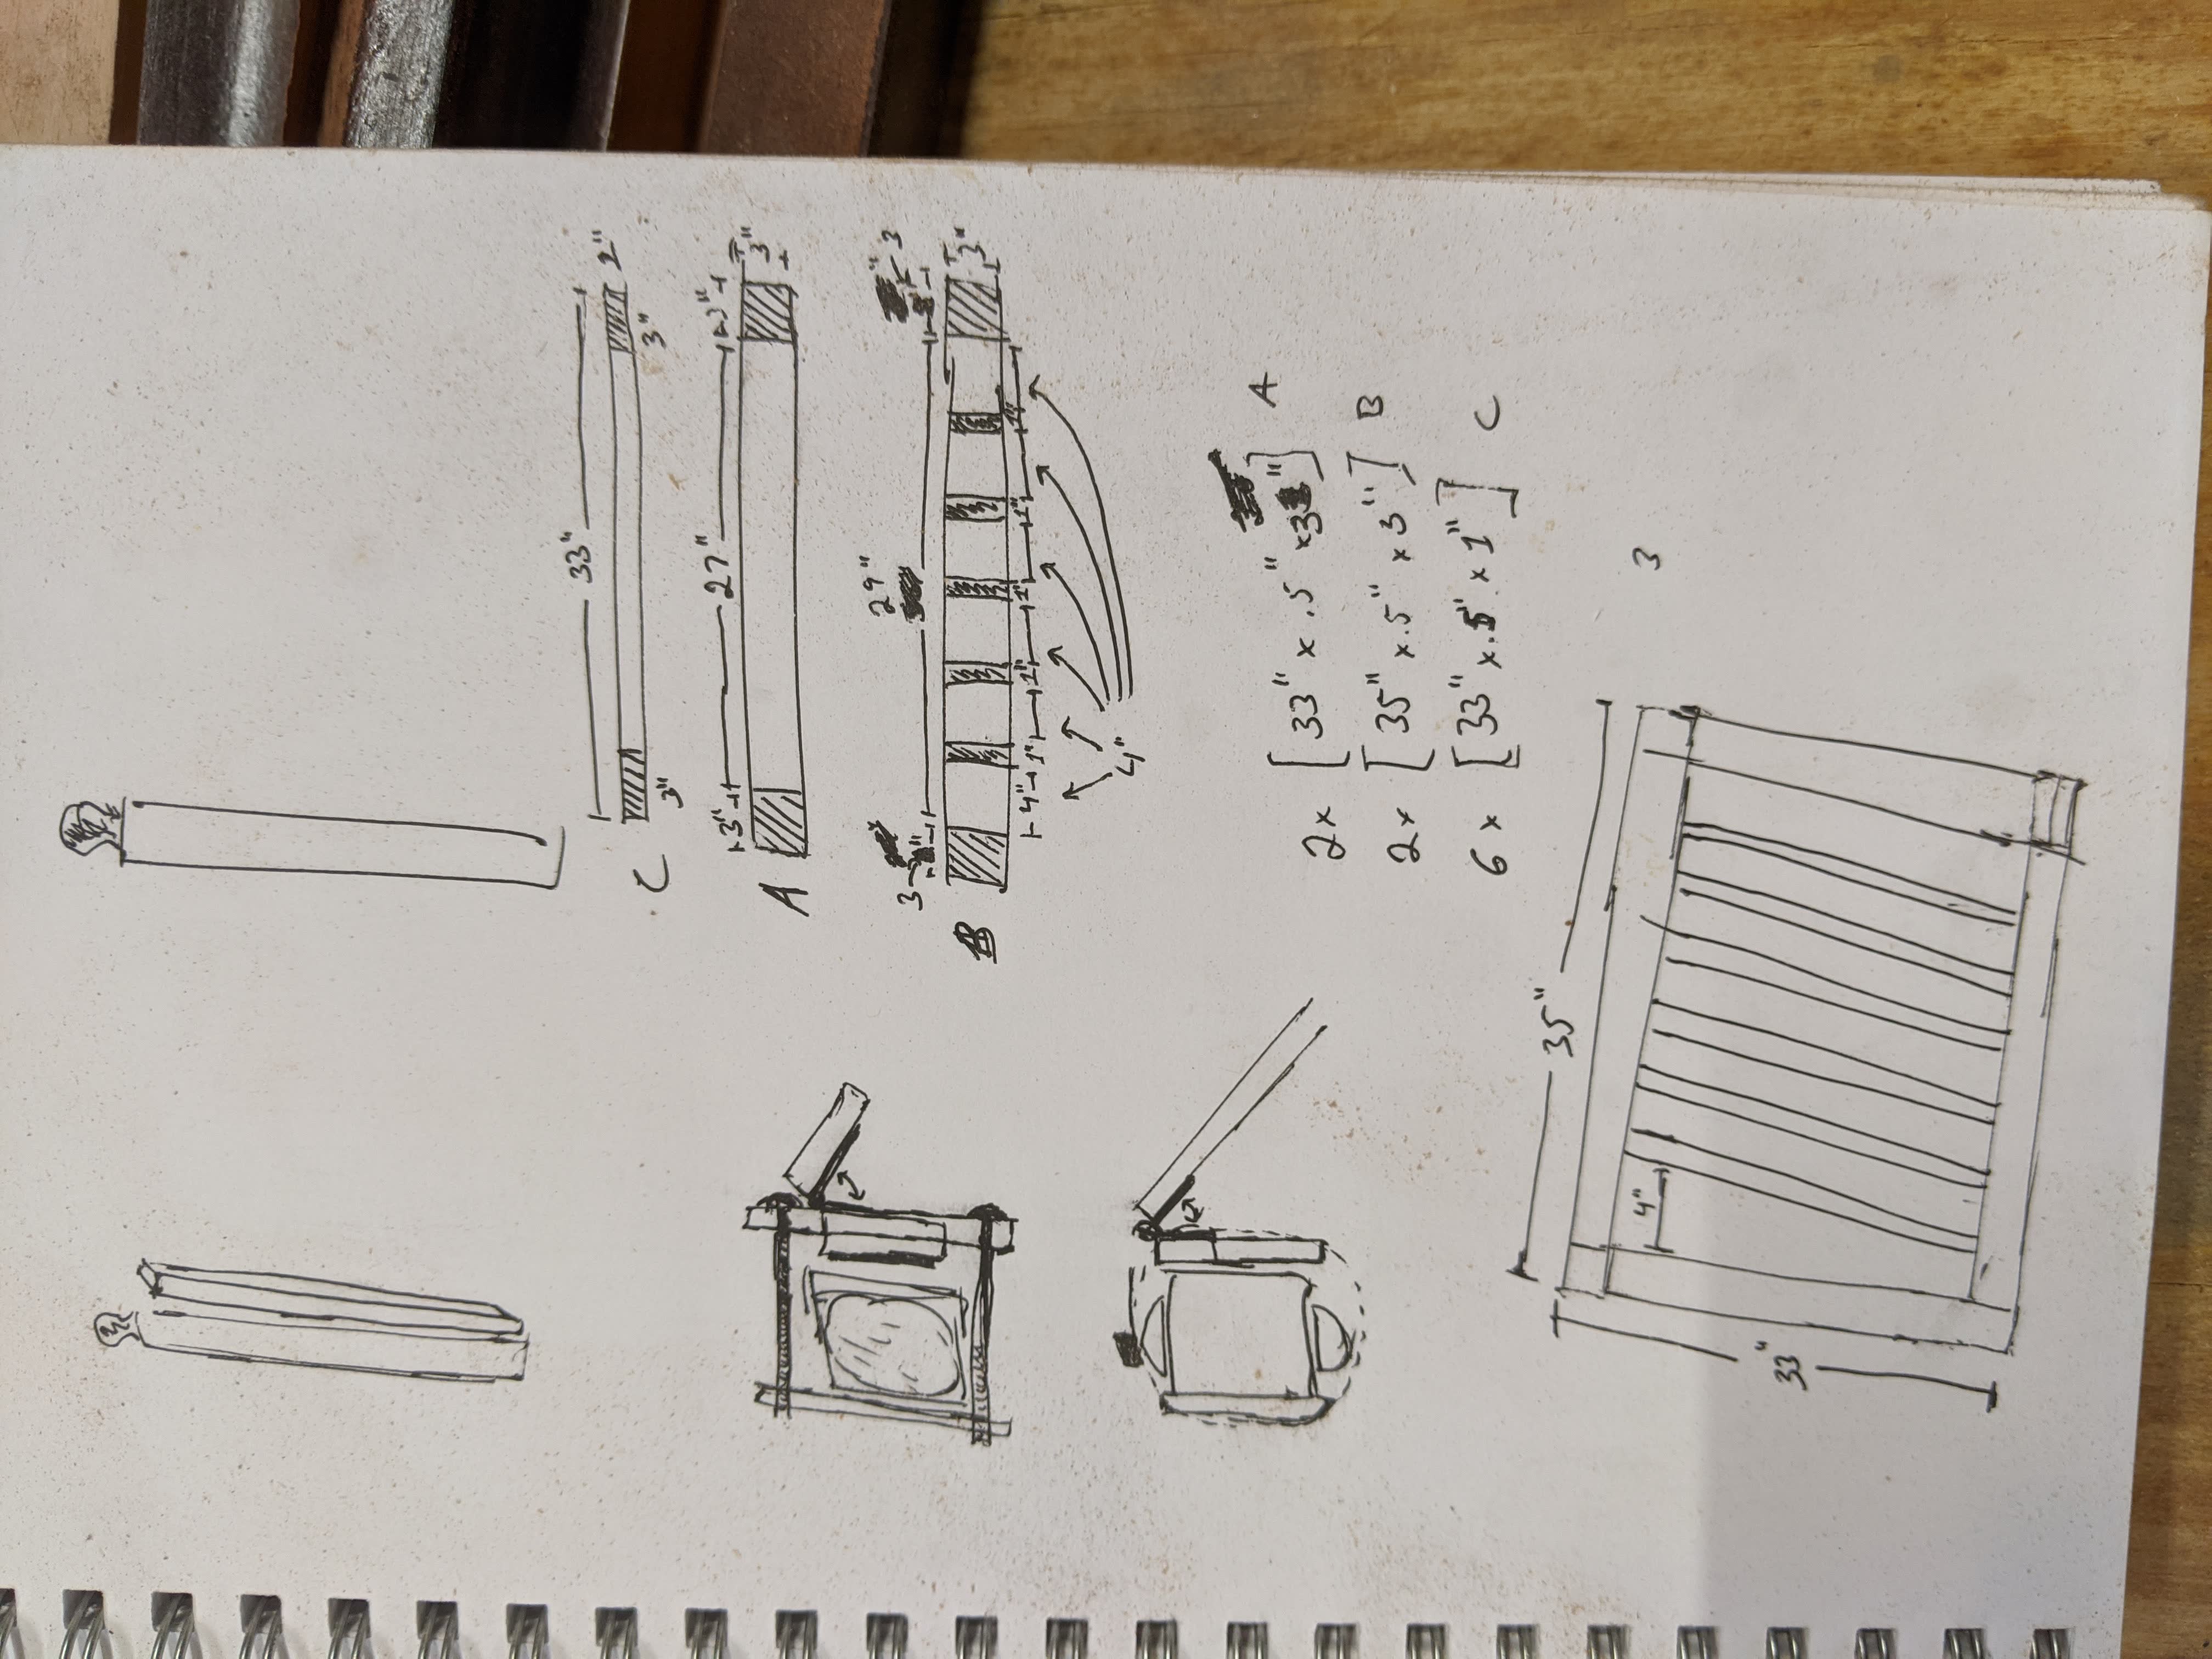 33"
C 2"
3" 3"
3" 27" 3"
A 3"
29"
3 3
B 3"
4" 1" 1" 1" 1" 1"
4"
2x [33" x .5" x 3"] A
2x [35" x .5" x 3"] B
6x [33" x .5" x 1"] C
35"
4" 3
33"